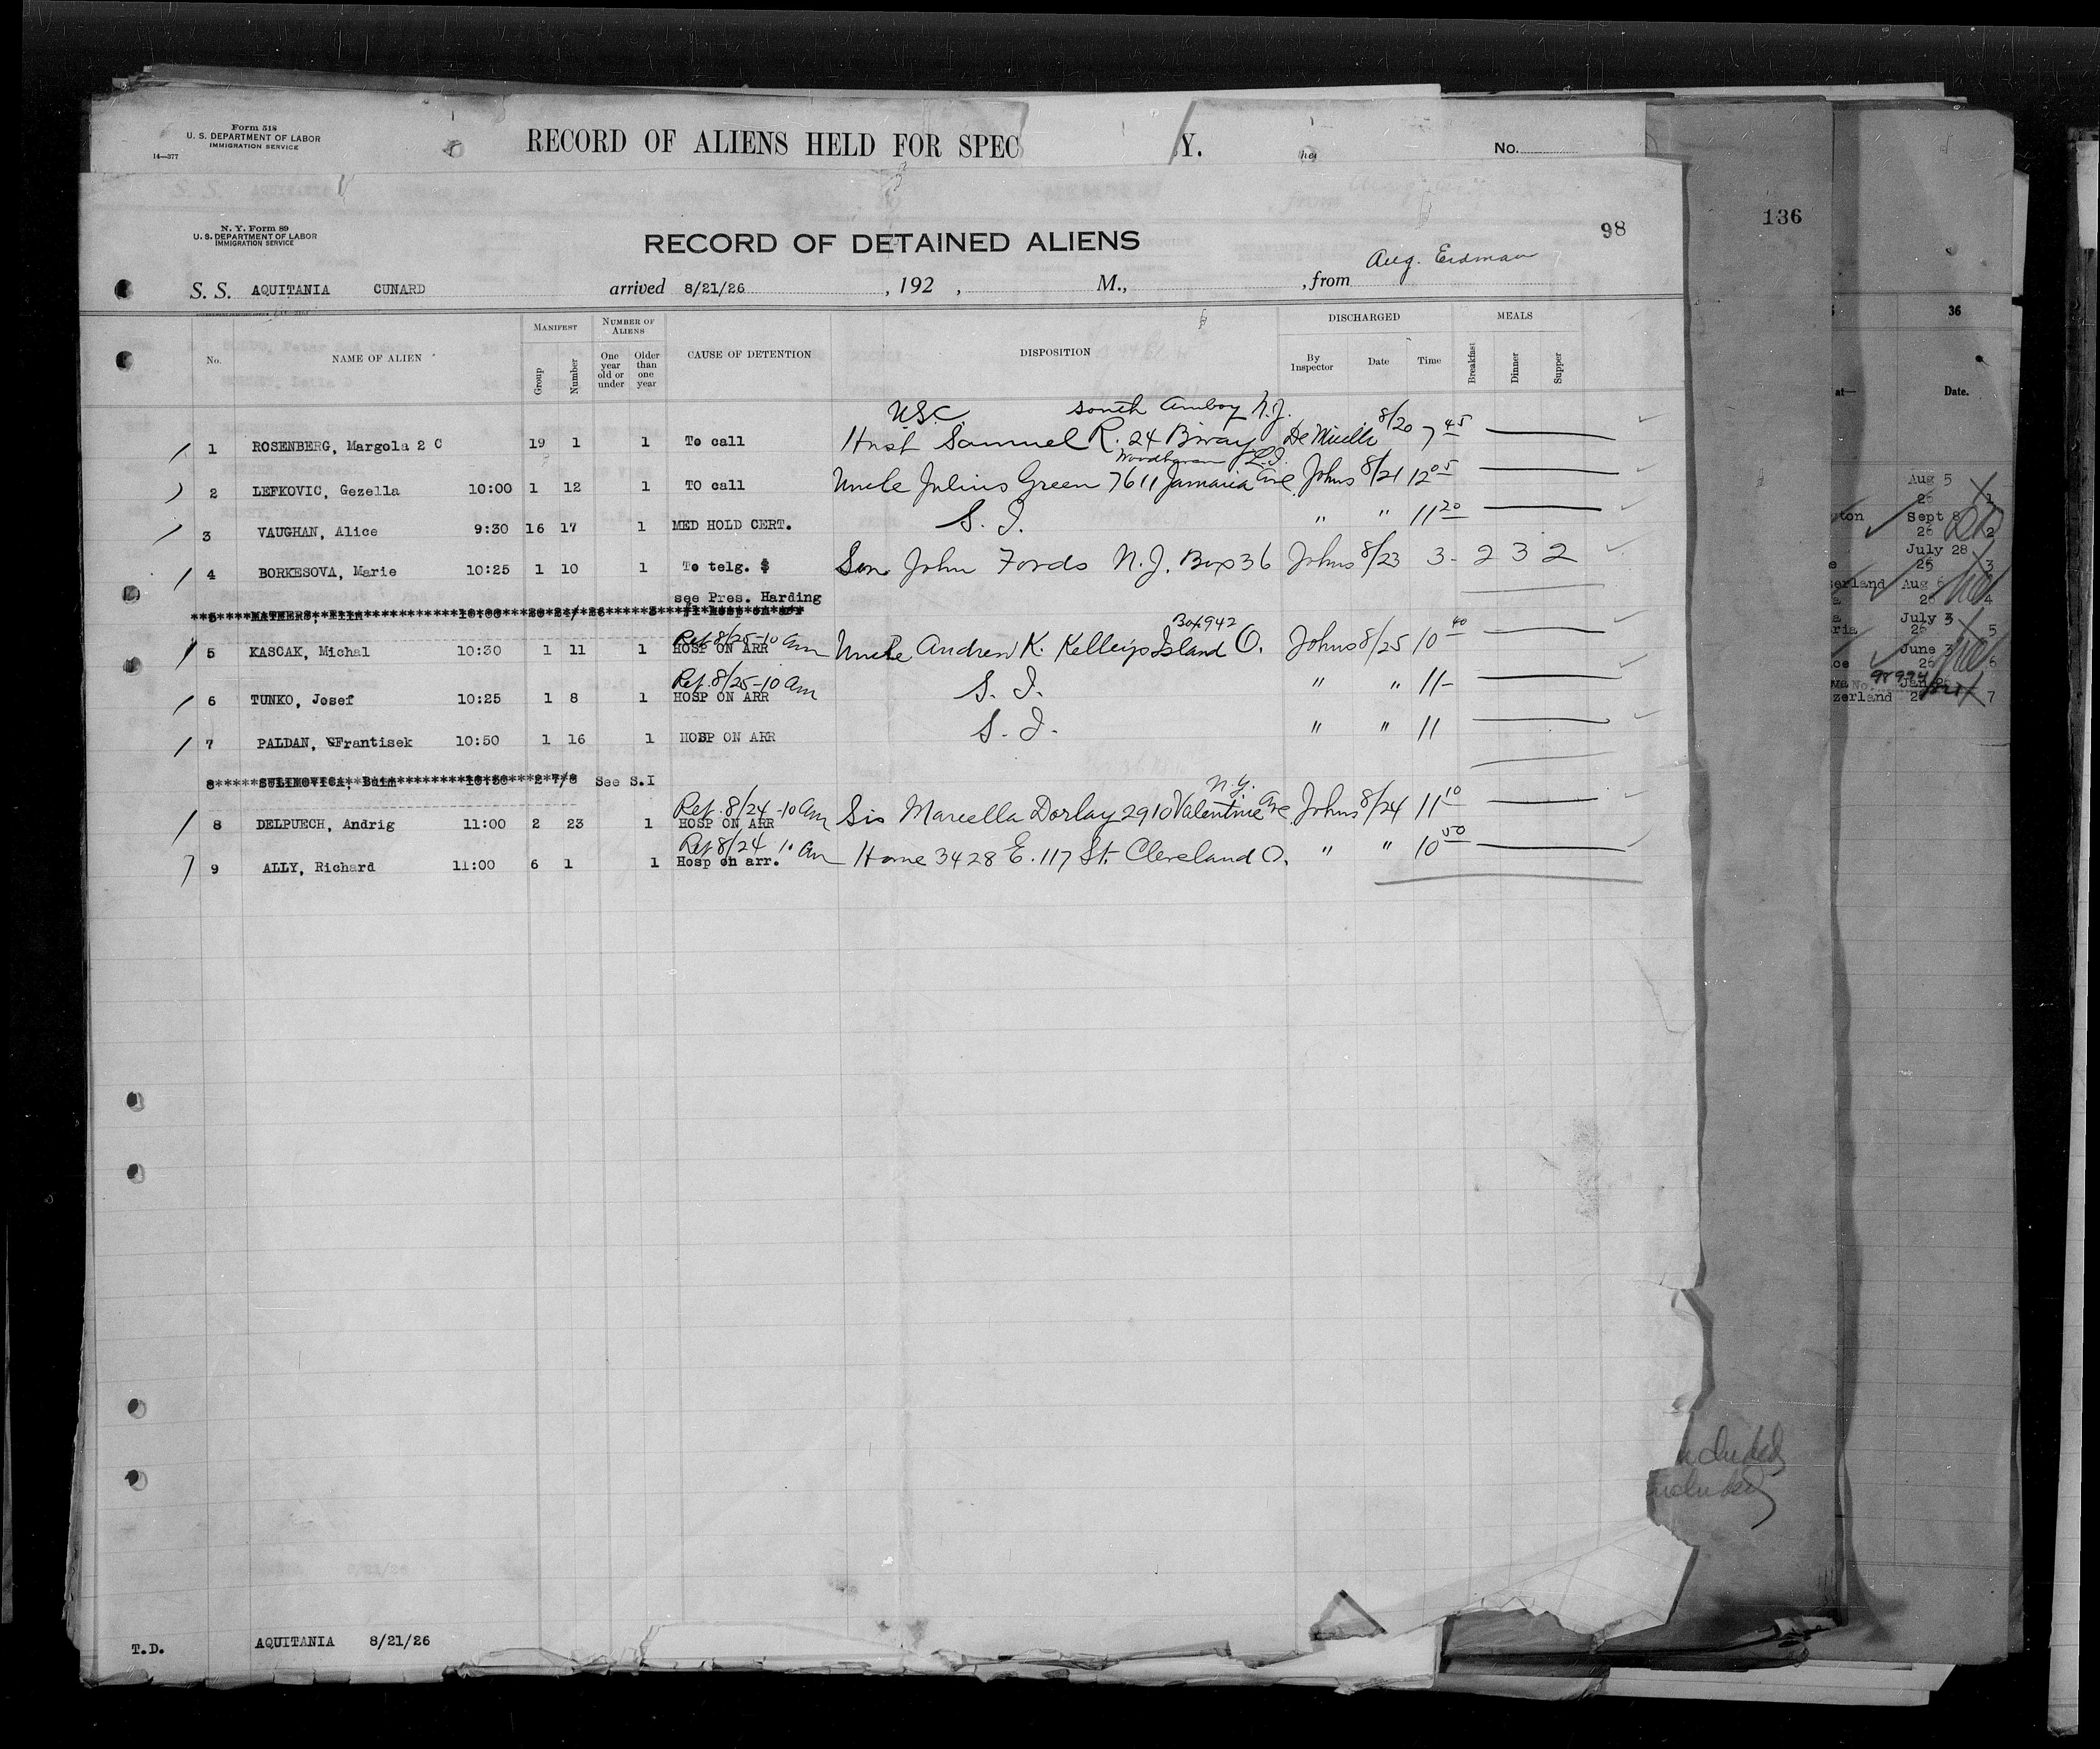 Form 518
U. S. DEPARTMENT OF LABOR
IMMIGRATION SERVICE
14—377
RECORD OF ALIENS HELD FOR SPEC Y. No.
N. Y. Form 89
U. S. DEPARTMENT OF LABOR
IMMIGRATION SERVICE
RECORD OF DETAINED ALIENS
98
136
Aug. Erdman
S. S. AQUITANIA CUNARD arrived 8/21/26, 192 , M., , from
No. NAME OF ALIEN MANIFEST Group Number NUMBER OF ALIENS One year old or under Older than one year CAUSE OF DETENTION DISPOSITION DISCHARGED By Inspector Date Time MEALS Breakfast Dinner Supper
USC South Amboy N.J.
1 ROSENBERG, Margola 2 C 19 1 1 To call Husb Samuel R. 24 Bway 8/20 7 45
L.I.
2 LEFKOVIC, Gezella 10:00 1 12 1 TO call Uncle Julius Green 7611 Jamaica Ave Johns 8/21 12 05
3 VAUGHAN, Alice 9:30 16 17 1 MED HOLD CERT. S. I. " " 11 20
4 BORKESOVA, Marie 10:25 1 10 1 To telg. $ Son John Fords N.J. Box 36 Johns 8/23 3- 2 3 2
see Pres. Harding
Box 942
Ref. 8/25-10 am
5 KASCAK, Michal 10:30 1 11 1 HOSP ON ARR Uncle Andrew K. Kelley's Island O. Johns 8/25 10 40
Ref. 8/25-10 am
6 TUNKO, Josef 10:25 1 8 1 HOSP ON ARR S. I. " " 11-
7 PALDAN, Frantisek 10:50 1 16 1 HOSP ON ARR S. I. " " 11
See S.I
N.Y.
Ref. 8/24-10 am
8 DELPUECH, Andrig 11:00 2 23 1 HOSP ON ARR Sis Marcella Dorlay 2910 Valentine Ave Johns 8/24 11 10
Ref 8/24 10 am
9 ALLY, Richard 11:00 6 1 1 Hosp on arr. Home 3428 E. 117 St. Cleveland O. " " 10 50
T.D. AQUITANIA 8/21/26
36
at— Date.
Aug 5
26 1
ton Sept 8
26 2
July 28
25 3
erland Aug 6
26 4
July 3
ria 26 5
June 3
26 6
zerland 7